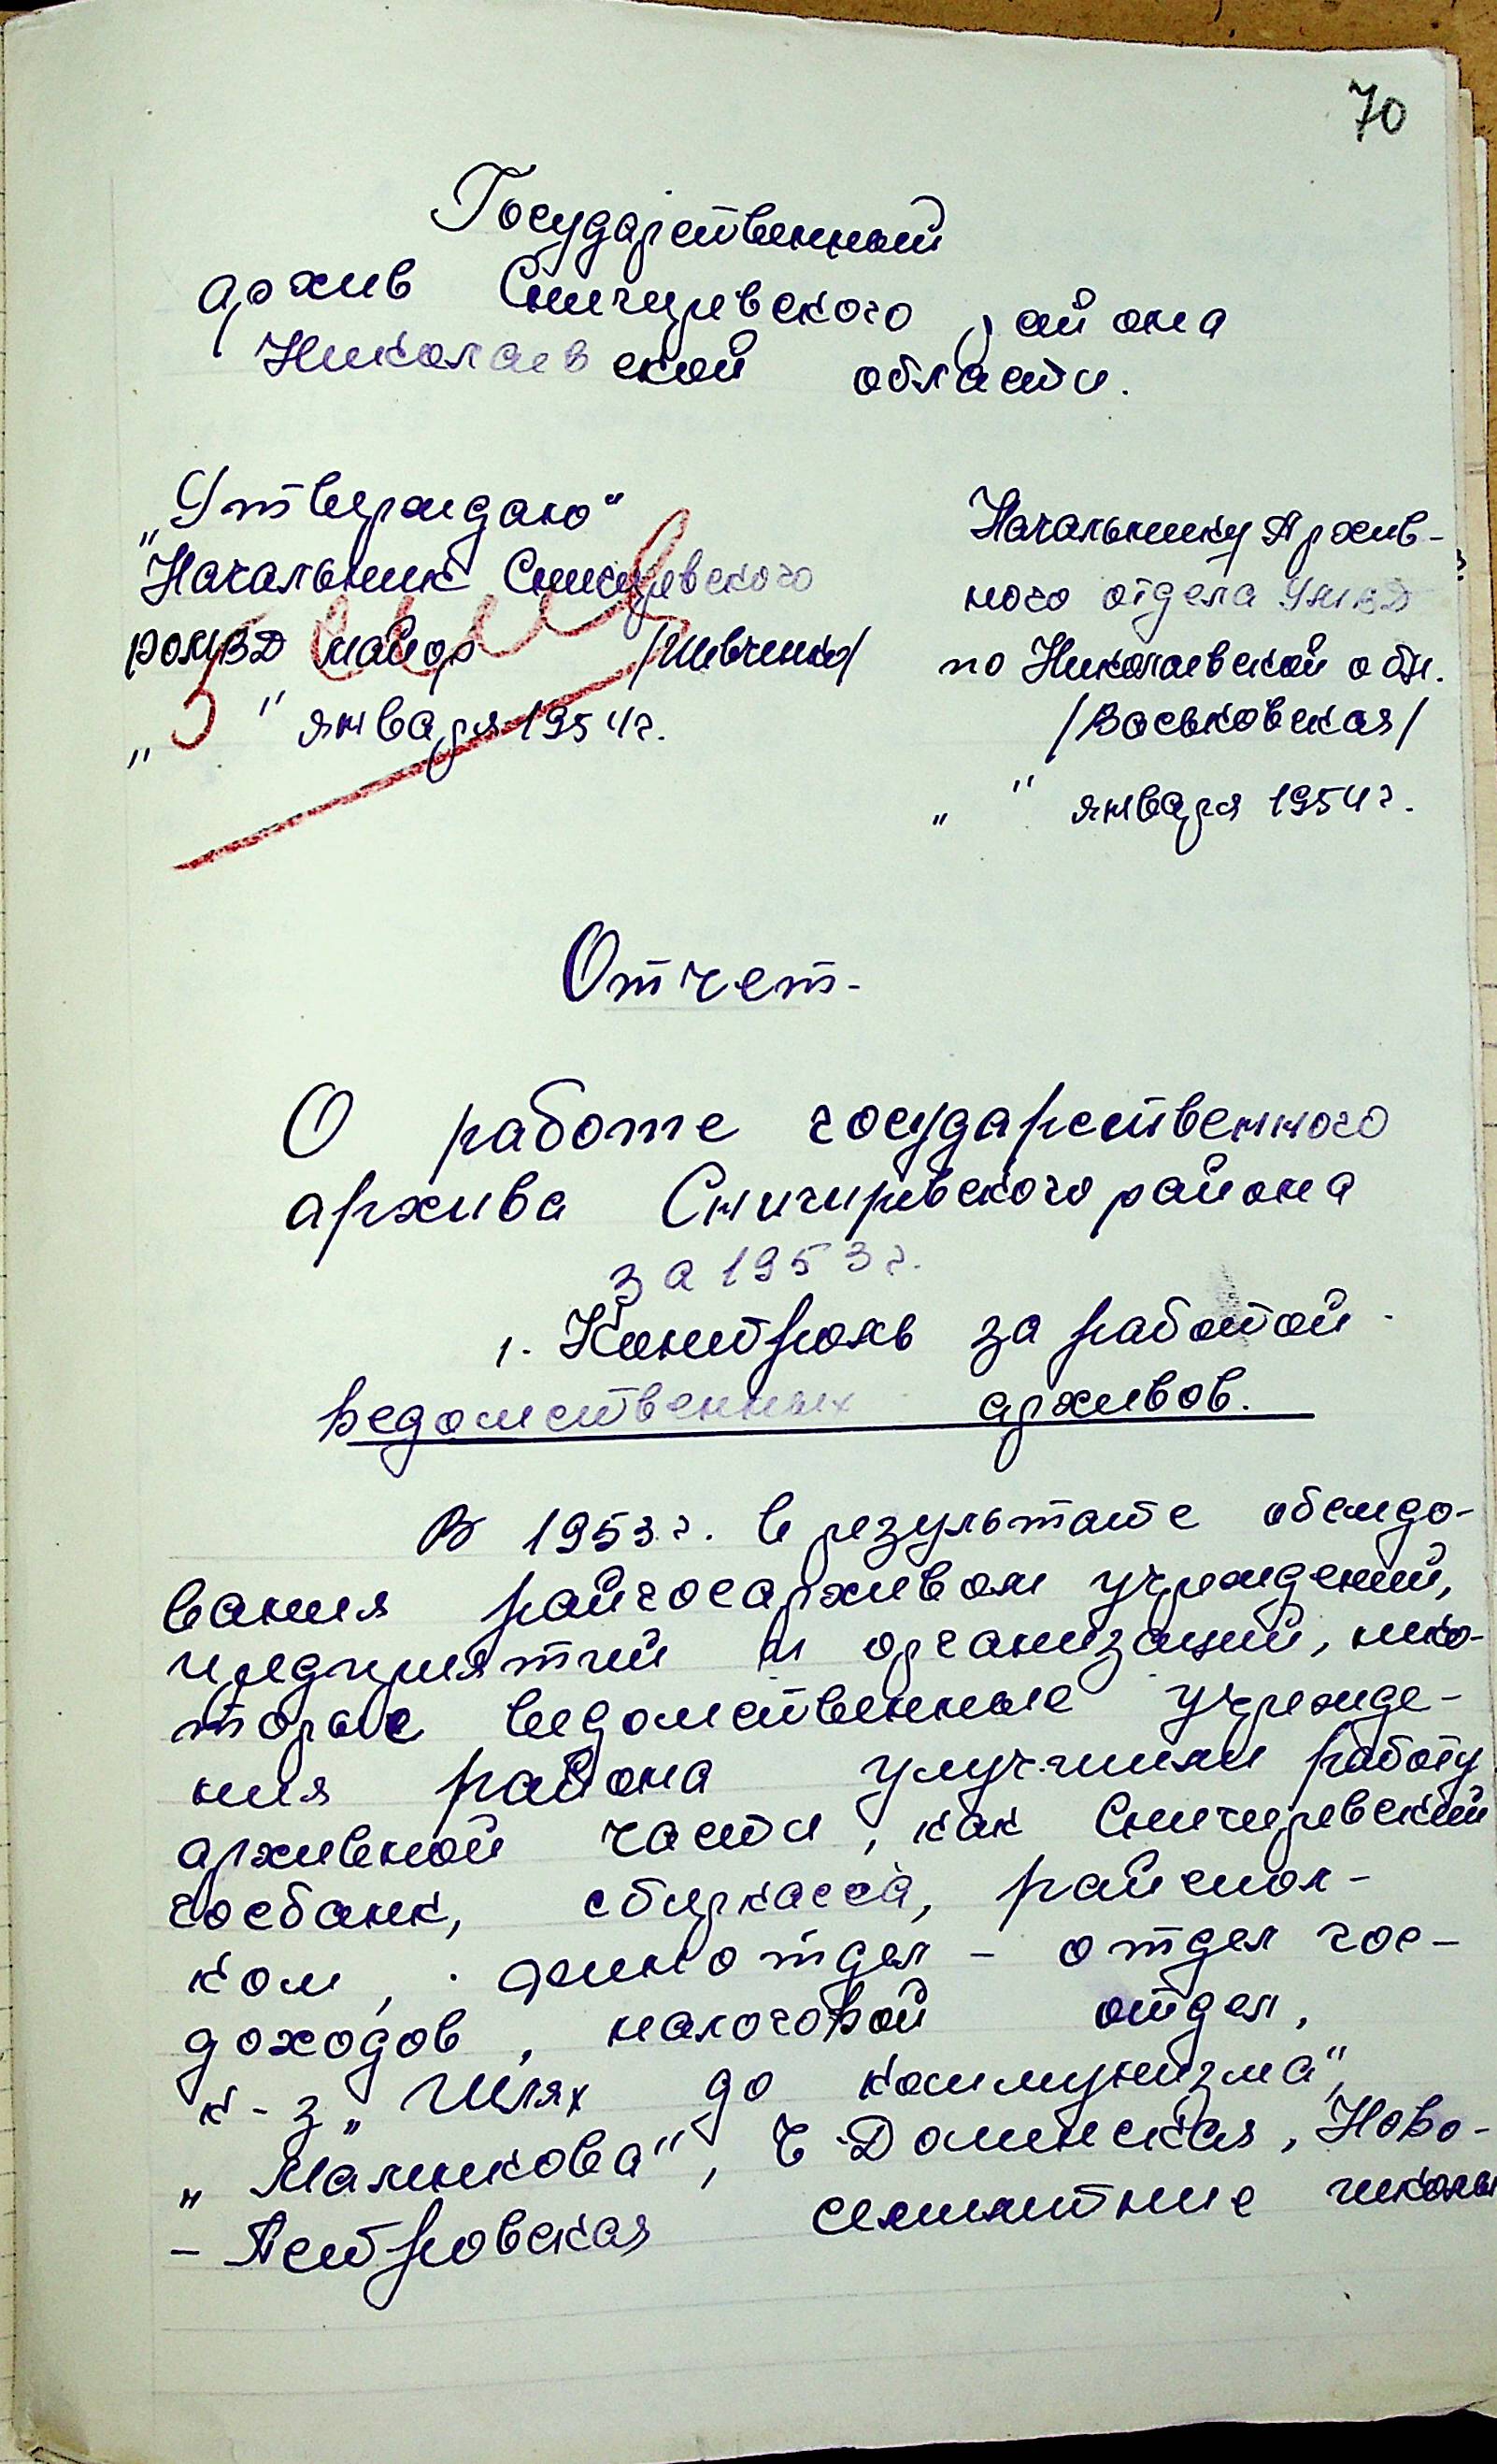 70
Государственный
архив Снигиревского района
Николаевской области.
„Утверждаю“
Начальник Снигиревского
РОМВД майор /Шевченко/
„5“ января 1954г.
Начальнику Архив-
ного отдела УМВД
по Николаевской обл.
/Воськовская/
„ “ января 1954г.
Отчет-
О работе государственного
архива Снигиревского района
за 1953г.
1. Контроль за работой
ведомственных архивов.
В 1953г. в результате обследо-
вания райгосархивом учреждений,
предприятий и организаций, неко-
торые ведомственные учрежде-
ния района улучшили работу
архивной части, как Снигиревский
госбанк, сберкасса, райиспол-
ком, финотдел - отдел гос-
доходов, налоговой отдел,
к-з „Шлях до коммунизма“,
„Маленкова“, Ново-
- Петровская семилетние школы